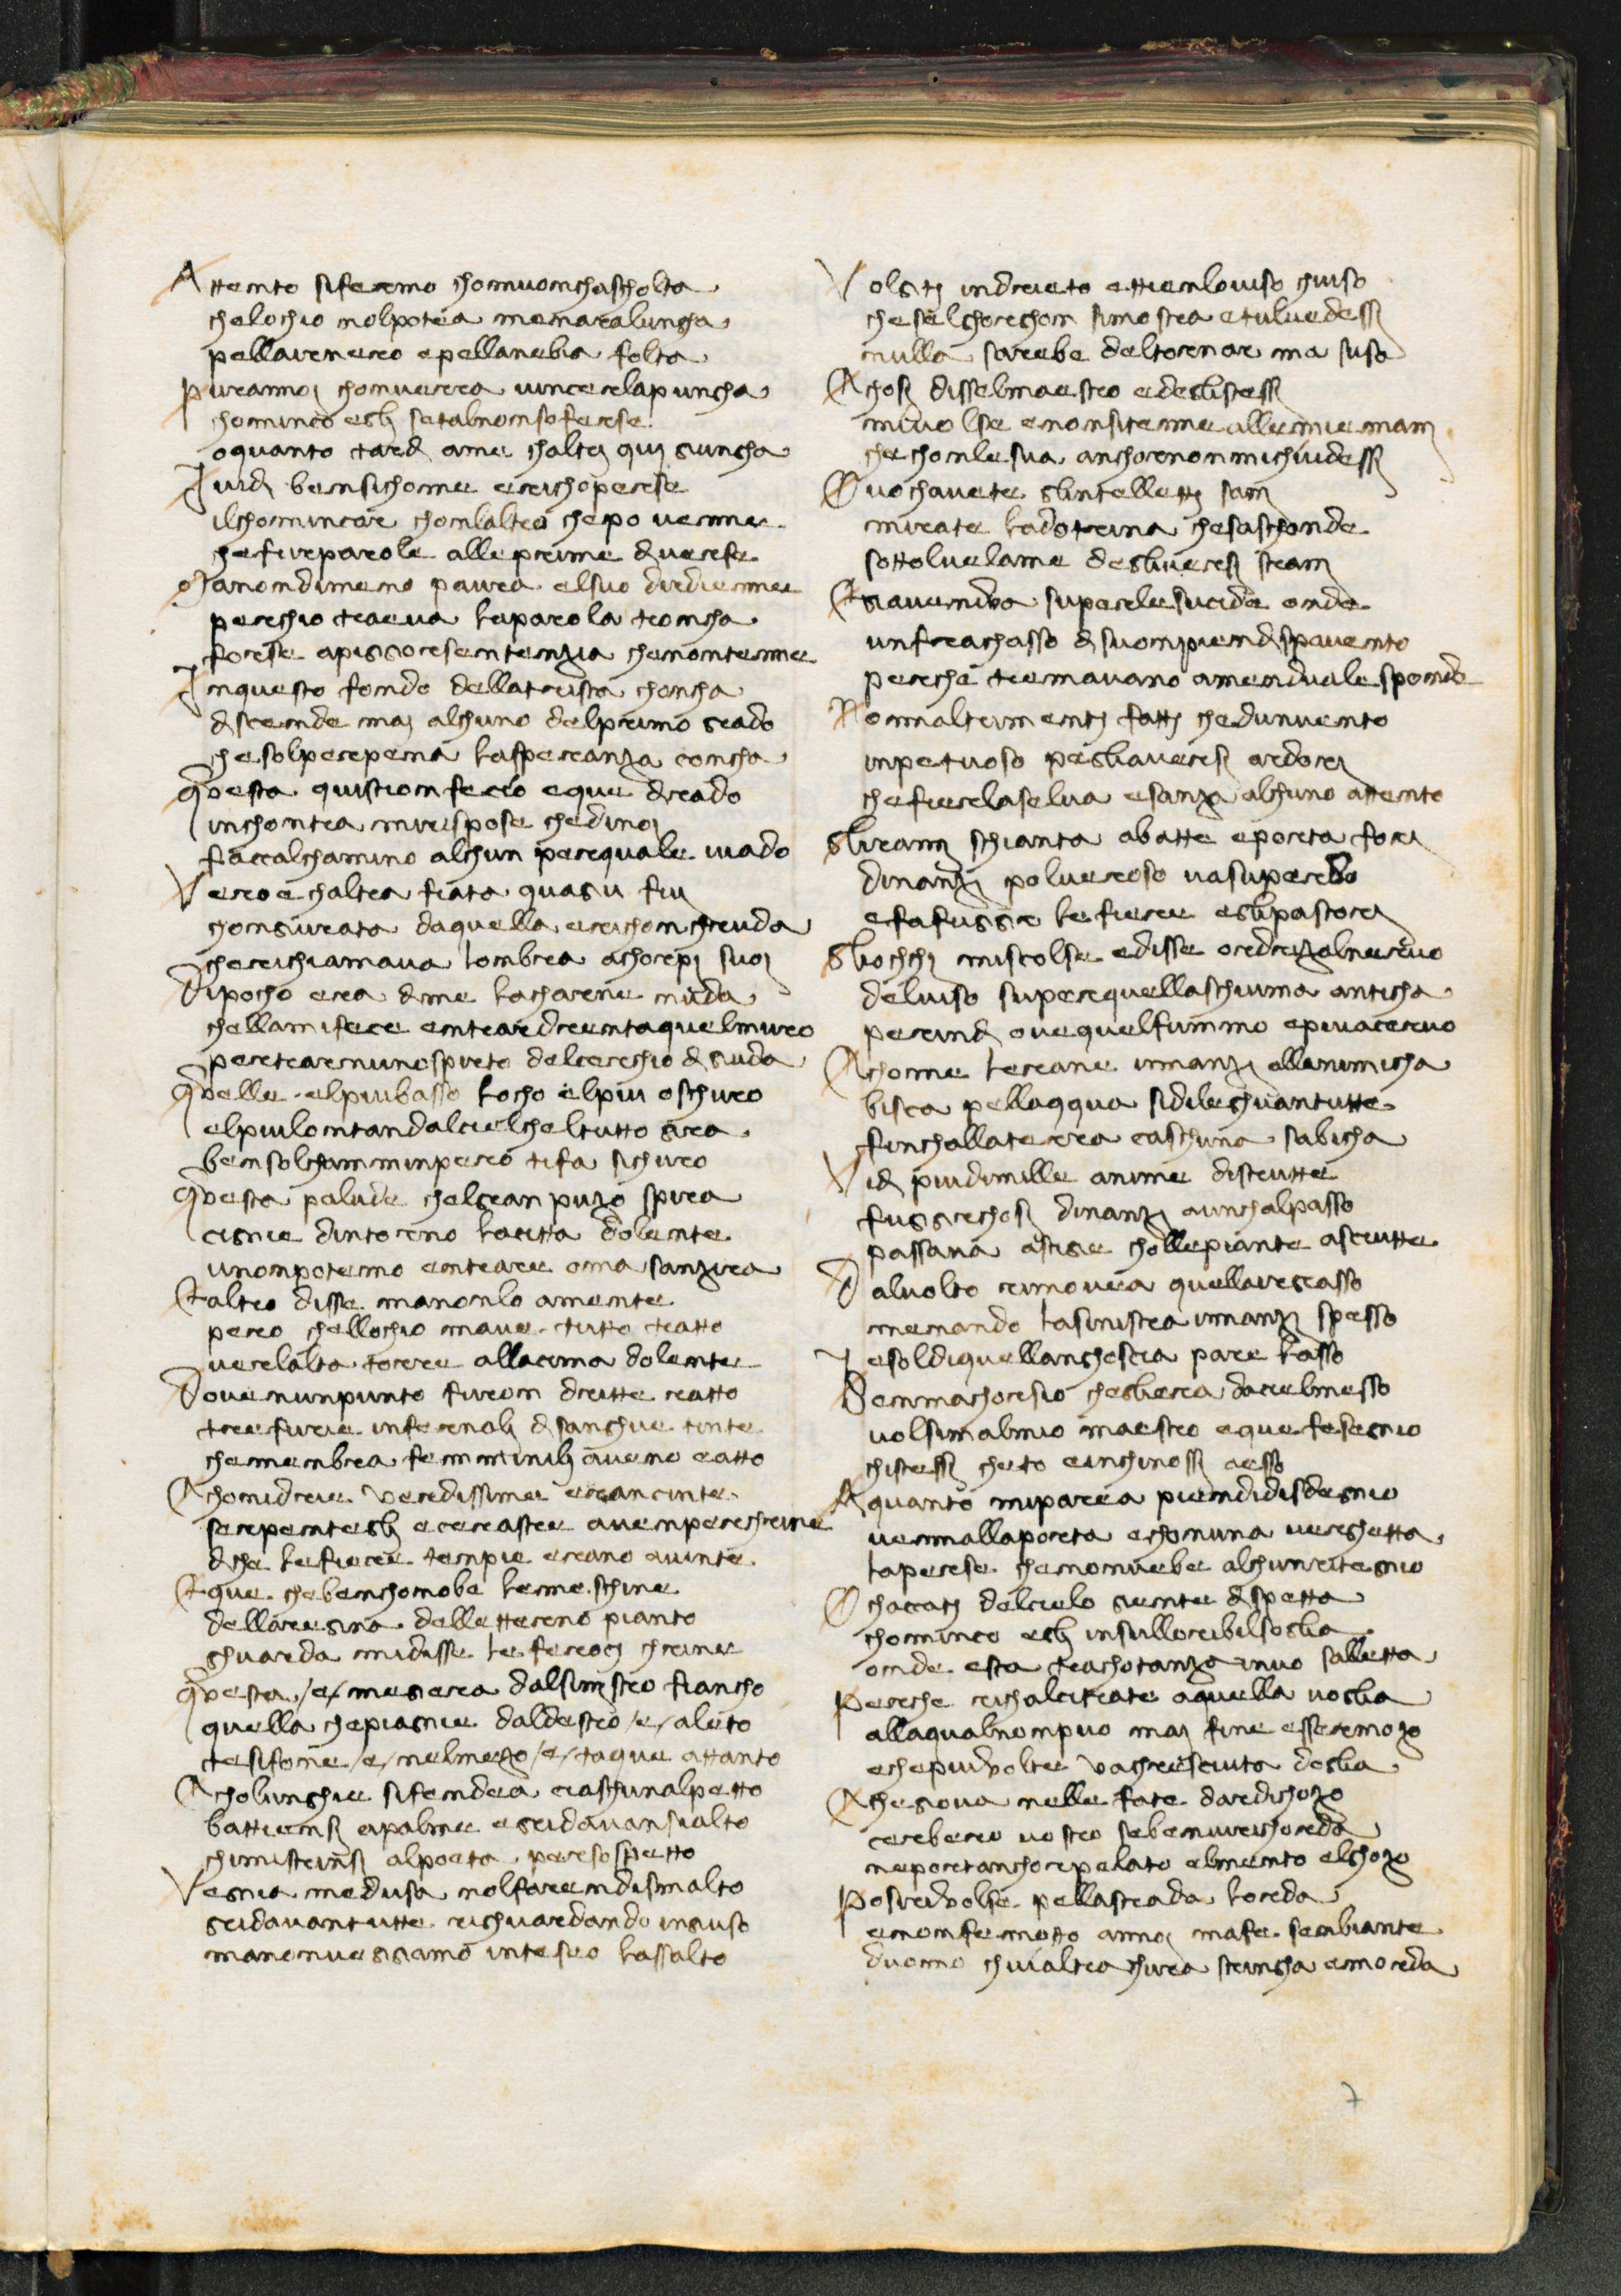 Attento sifermo chomuomchascholta
chelochio nolpotea menaralungha
pellaernero epellanebia folta
Purannoj chonverra vincerlapuncha
chomincò eglj setalnonsoferse
oquanto tardj ame chaltrj quj giungha
Iuidj bensichome ericoperse
ilchominciar chonlaltro chepo venne
chefurparole alleprime diverse
Manondimeno paura elsuo dirdienne
perchio traeva laparola troncha
forse apiggorsentenzia chenontenne
Inquesto fondo dellatrista choncha
discende maj alchuno delprimo grado
chesolperpena lasperanza cioncha
Questa quistionfecio eque dirado
inchontra mirispose chedinoj
facialchamino alchun perquale vado
Vero è chaltra fiata quagiu fuj
chongiurata daquella erichonchruda
cherichiamava lombra achorpj suoj
Dipocho era dime lacharne nuda
chellamifece entrardrentaquelmuro
pertrarnunospirto delcerchio digiuda
Quelle elpiubasso locho elpiu oschuro
elpiulontandalcielcheltutto gira
bensolchamminpero tifa sichuro
Questa palude chelgranpuzo spira
cignie dintorno lacitta dolente
unonpotemo entrare oma sanzira
Ealtro disse manonlo amente
pero chellochio mave tutto tratto
verlalta torre allacima dolente
Dovenunpunto furon dritte ratto
tre furie infernalj disanghue tinte
chemembra femminilj aveno eatto
Echonidrie verdissime erancinte
serpentegli eceraste avenperchrine
diche lefiere tempie erano avinte
Eque chebenchonobe lemeschine
dellaregina delletterno pianto
ghuarda midisse leferocj chrine
Questa /e/ megera dalsinistro fiancho
quella chepiagnie daldestro /e/ aleto
tesifone /e/ nelmezo /e/ taque attanto
Cholunghie sifendea ciaschunalpetto
battiensj apalme egridavansialto
chimistrinsj alpoeta persospetto
Vegnia medusa nolfarendismalto
gridavantutte righuardando ingiuso
manonvegiamo inteseo lassalto
Volgitj indrieto ettienlouiso chiuso
cheselghorghon simostra etuluedessj
nulla sarebe deltornar ma suso
Chosj disselmaestro edeglistessj
mivolse enonsitenne allemie manj
chechonle sua anchornonmichiudessj
O vochavete glintellettj sanj
mirate ladotrina chesaschonde
sottoluelame deglivèrsj stranj
Egiaveniva superlesucide onde
unfrachasso disuonpiendispavento
perchè tremavano amenduale sponde
Nonnaltrimentj fattj chedunvento
inpetuoso pegliaversj ardorj
chefierlaselva esanza alchuno attento
Gliramj schianta abatte eporta forj
dinanzj polveroso vasuperbo
efafuggir lefiere eglipastorj
Gliochhj miscolse edisse ordrizalnervo
delviso superquellaschiuma anticha
perindj ovequelfummo epiuacervo
Chome lerane innanzj allanimicha
biscia pellaqqua sidileghuantutte
finchallaterra ciaschuna sabicha
Vidj piudimille anime distrutte
fuggirchosj dinanzj aunchalpasso
passava astige chollepiante asciutte
Dalvolto rimovea quellaregrasso
menando lasinistra innanzj spesso
esoldiquellanghoscia pare lasso
Benmachorsio chegliera dacielmesso
volsimalmio maestro eque fesegnio
chistessj cheto einchinossj aesso
A quanto miparea piendidisdegnio
vennallaporta echonuna verghetta
laperse chenonvebe alchunritegnio
O chacciatj delcielo giente dispetta
chomincò eglj insullorribilsoglia
onde esta trachotanza inuo salletta
Perche richalcitrate aquella voglia
allaqualnonpuo maj fine essermozo
echepiuvolte vachresciuta doglia
Chegiova nelle fata dardichozo
cerbero vostro sebenvirichorda
neportanchorpelato elmento elghozo
Posirivolse pellastrada lorda
enonfemotto annoj mafe sembiante
duomo chuialtra chura stringha emorda
7